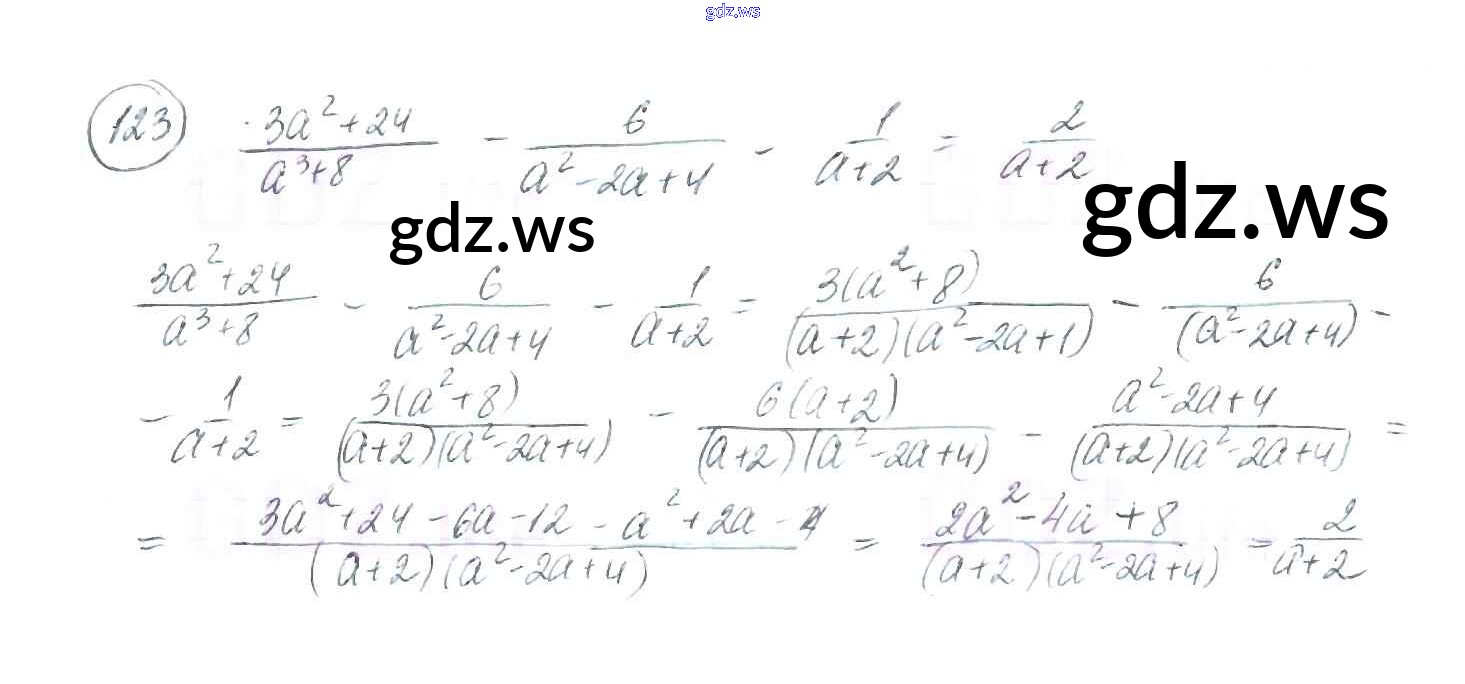 gdz.ws
123 (3a²+24)/(a³+8) - 6/(a²-2a+4) - 1/(a+2) = 2/(a+2)
gdz.ws
gdz.ws
(3a²+24)/(a³+8) - 6/(a²-2a+4) - 1/(a+2) = 3(a²+8)/((a+2)(a²-2a+1)) - 6/(a²-2a+4) -
- 1/(a+2) = 3(a²+8)/((a+2)(a²-2a+4)) - 6(a+2)/((a+2)(a²-2a+4)) - (a²-2a+4)/((a+2)(a²-2a+4)) =
= (3a²+24-6a-12-a²+2a-4)/((a+2)(a²-2a+4)) = (2a²-4a+8)/((a+2)(a²-2a+4)) = 2/(a+2)